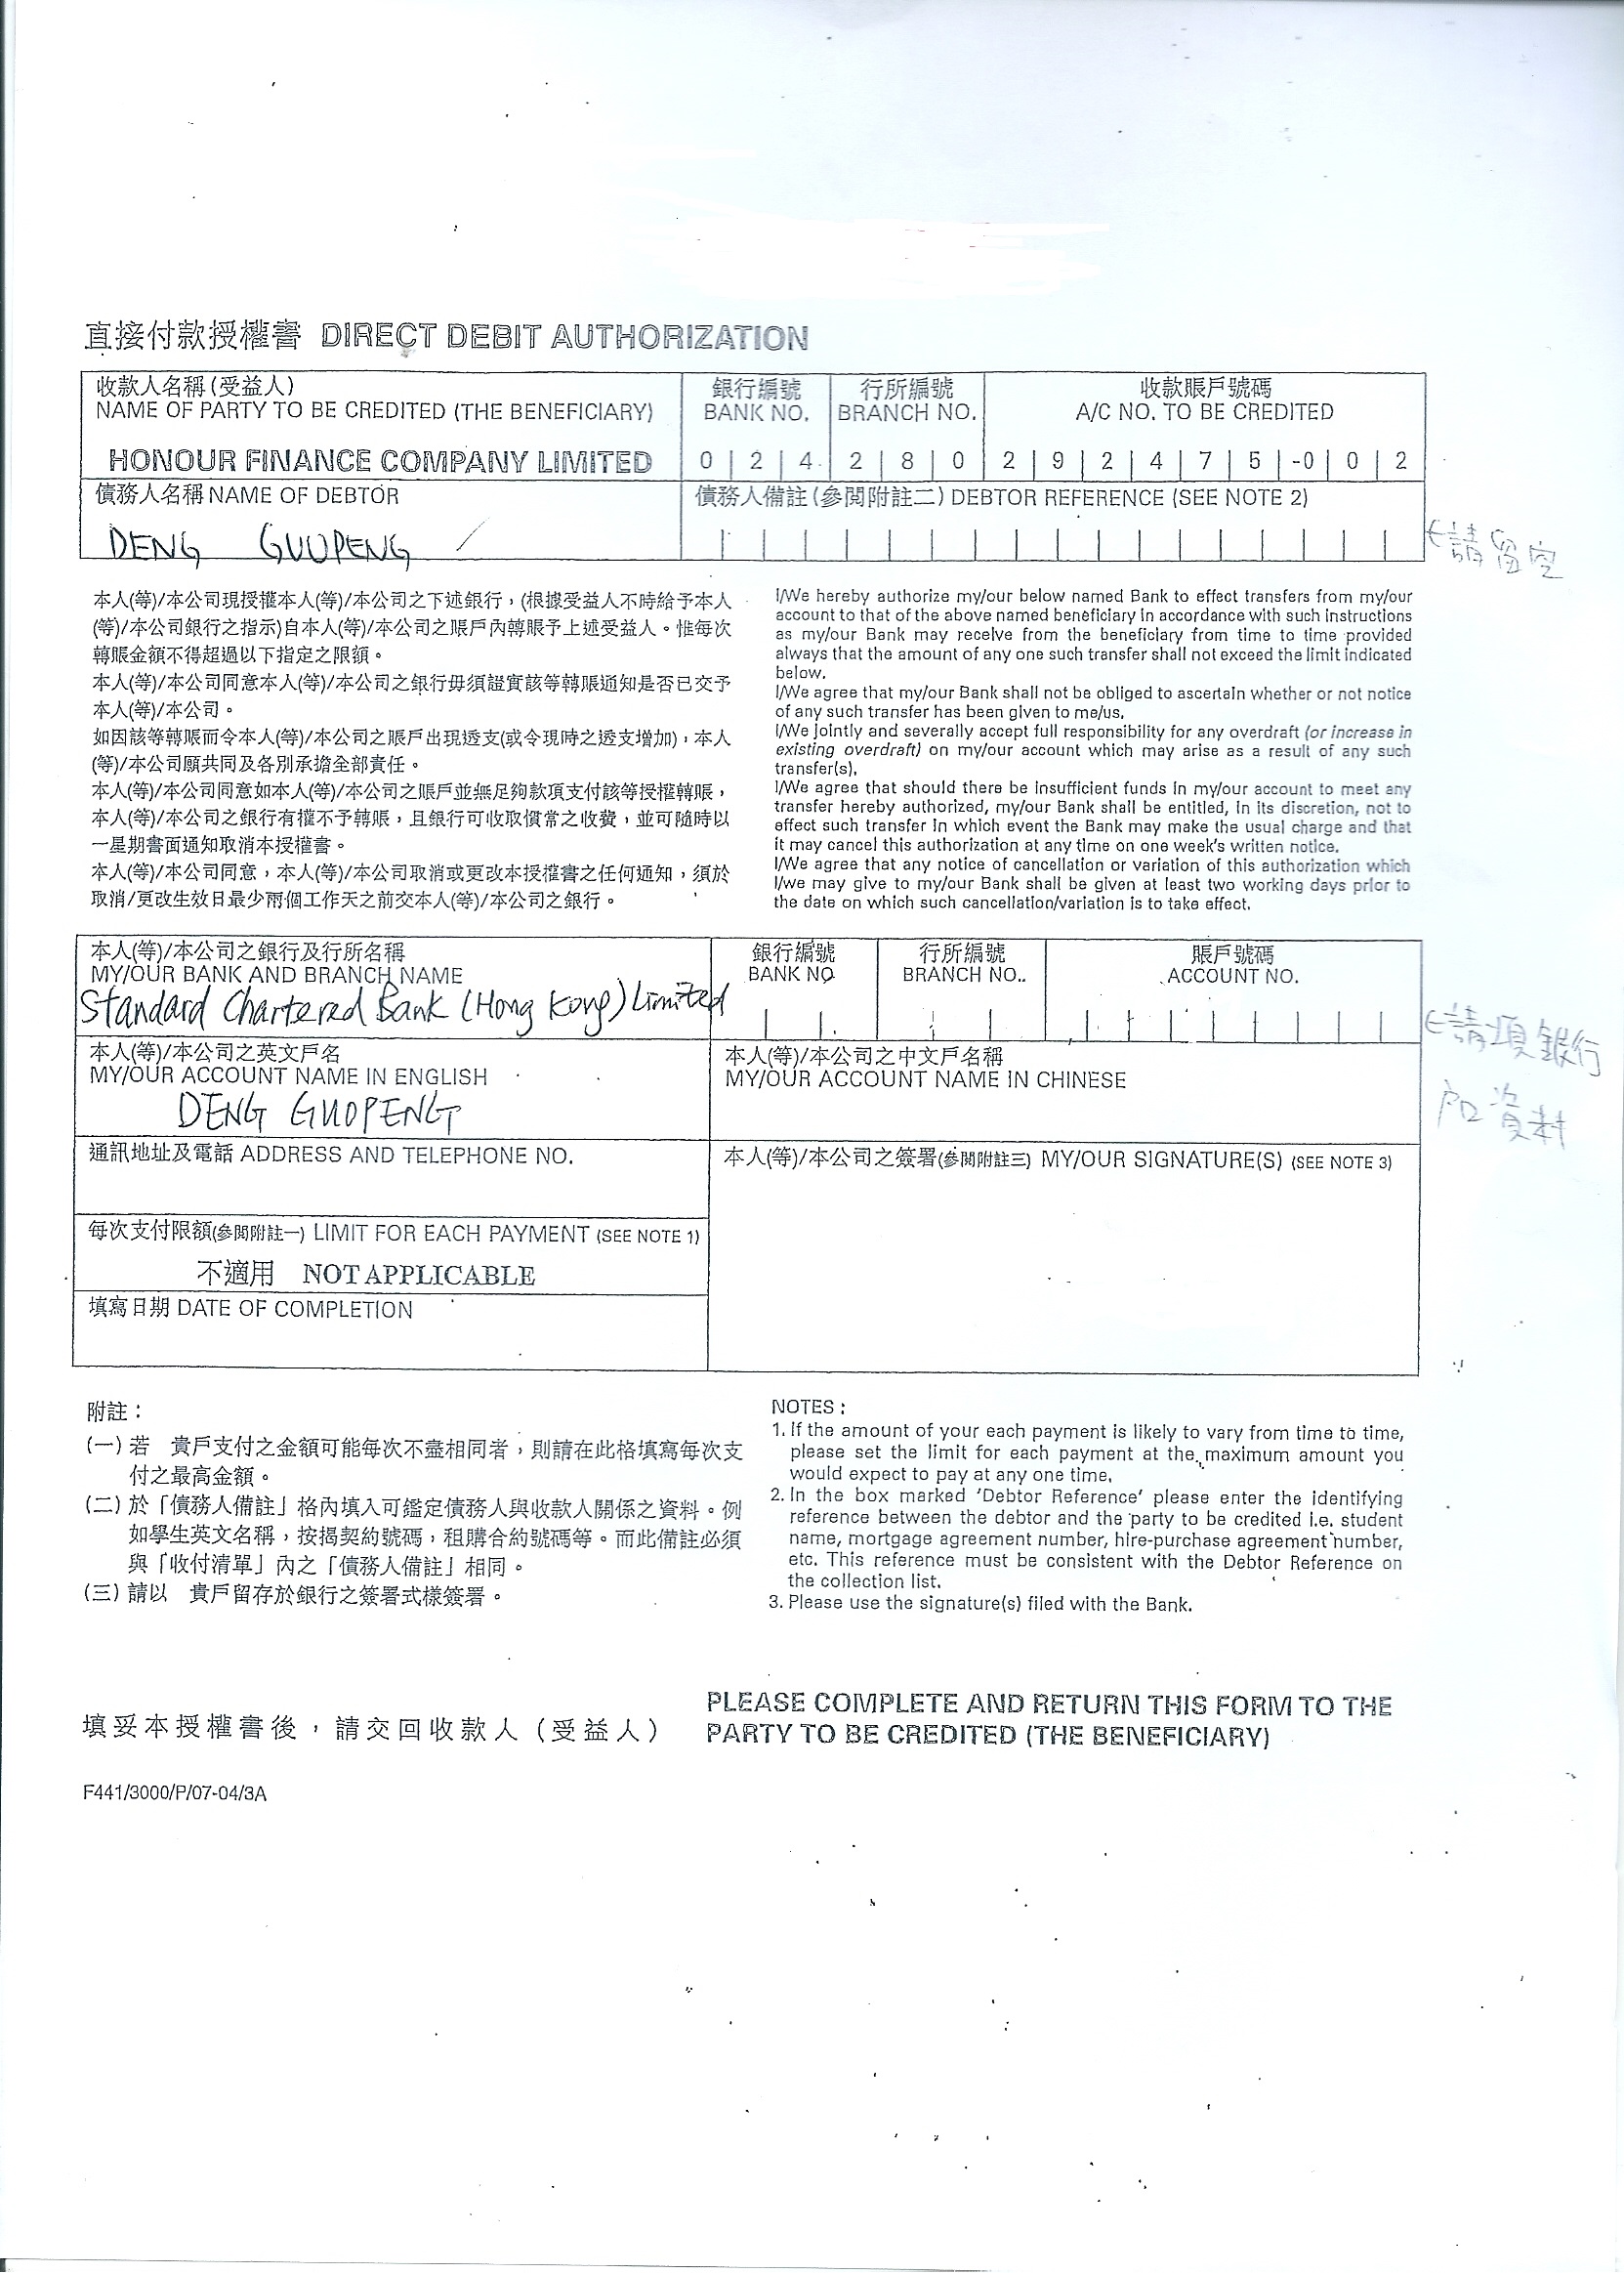 直接付款授權書 DIRECT DEBIT AUTHORIZATION
收款人名稱(受益人) 銀行編號 行所編號 收款賬戶號碼
NAME OF PARTY TO BE CREDITED (THE BENEFICIARY) BANK NO. BRANCH NO. A/C NO. TO BE CREDITED
HONOUR FINANCE COMPANY LIMITED 0 2 4 2 8 0 2 9 2 4 7 5 -0 0 2
債務人名稱 NAME OF DEBTOR 債務人備註(參閱附註二) DEBTOR REFERENCE (SEE NOTE 2)
DENG GUOPENG
請留空
本人(等)/本公司現授權本人(等)/本公司之下述銀行，(根據受益人不時給予本人
(等)/本公司銀行之指示)自本人(等)/本公司之賬戶內轉賬予上述受益人。惟每次
轉賬金額不得超過以下指定之限額。
本人(等)/本公司同意本人(等)/本公司之銀行毋須證實該等轉賬通知是否已交予
本人(等)/本公司。
如因該等轉賬而令本人(等)/本公司之賬戶出現透支(或令現時之透支增加)，本人
(等)/本公司願共同及各別承擔全部責任。
本人(等)/本公司同意如本人(等)/本公司之賬戶並無足夠款項支付該等授權轉賬，
本人(等)/本公司之銀行有權不予轉賬，且銀行可收取慣常之收費，並可隨時以
一星期書面通知取消本授權書。
本人(等)/本公司同意，本人(等)/本公司取消或更改本授權書之任何通知，須於
取消/更改生效日最少兩個工作天之前交本人(等)/本公司之銀行。
I/We hereby authorize my/our below named Bank to effect transfers from my/our
account to that of the above named beneficiary in accordance with such instructions
as my/our Bank may receive from the beneficiary from time to time provided
always that the amount of any one such transfer shall not exceed the limit indicated
below.
I/We agree that my/our Bank shall not be obliged to ascertain whether or not notice
of any such transfer has been given to me/us.
I/We jointly and severally accept full responsibility for any overdraft (or increase in
existing overdraft) on my/our account which may arise as a result of any such
transfer(s).
I/We agree that should there be insufficient funds in my/our account to meet any
transfer hereby authorized, my/our Bank shall be entitled, in its discretion, not to
effect such transfer in which event the Bank may make the usual charge and that
it may cancel this authorization at any time on one week's written notice.
I/We agree that any notice of cancellation or variation of this authorization which
I/we may give to my/our Bank shall be given at least two working days prior to
the date on which such cancellation/variation is to take effect.
本人(等)/本公司之銀行及行所名稱 銀行編號 行所編號 賬戶號碼
MY/OUR BANK AND BRANCH NAME BANK NO. BRANCH NO.. ACCOUNT NO.
Standard Chartered Bank (Hong Kong) Limited
請填銀行
戶口資料
本人(等)/本公司之英文戶名 本人(等)/本公司之中文戶名稱
MY/OUR ACCOUNT NAME IN ENGLISH MY/OUR ACCOUNT NAME IN CHINESE
DENG GUOPENG
通訊地址及電話 ADDRESS AND TELEPHONE NO. 本人(等)/本公司之簽署(參閱附註三) MY/OUR SIGNATURE(S) (SEE NOTE 3)
每次支付限額(參閱附註一) LIMIT FOR EACH PAYMENT (SEE NOTE 1)
不適用 NOT APPLICABLE
填寫日期 DATE OF COMPLETION
附註：
(一) 若 貴戶支付之金額可能每次不盡相同者，則請在此格填寫每次支
付之最高金額。
(二) 於「債務人備註」格內填入可鑑定債務人與收款人關係之資料。例
如學生英文名稱，按揭契約號碼，租購合約號碼等。而此備註必須
與「收付清單」內之「債務人備註」相同。
(三) 請以 貴戶留存於銀行之簽署式樣簽署。
NOTES :
1. If the amount of your each payment is likely to vary from time to time,
please set the limit for each payment at the maximum amount you
would expect to pay at any one time.
2. In the box marked 'Debtor Reference' please enter the identifying
reference between the debtor and the party to be credited i.e. student
name, mortgage agreement number, hire-purchase agreement number,
etc. This reference must be consistent with the Debtor Reference on
the collection list.
3. Please use the signature(s) filed with the Bank.
填妥本授權書後，請交回收款人（受益人）
PLEASE COMPLETE AND RETURN THIS FORM TO THE
PARTY TO BE CREDITED (THE BENEFICIARY)
F441/3000/P/07-04/3A